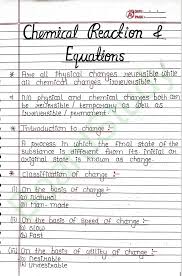 Chemical Reaction &
Equations
* Are all physical changes reversible while
all chemical changes irreversible?
No physical and chemical changes both can
be reversible / temporary as well as
irreversible / permanent.
* Introduction to change :-
A process in which the final state of the
substance is different from its initial or
original state is known as change.
* Classification of change :-
(i) On the basis of change :-
a) Natural
b) Man-made
(ii) On the basis of speed of change :-
a) Slow
b) Fast
(iii) On the basis of utility of change :-
a) Desirable
b) Undesirable